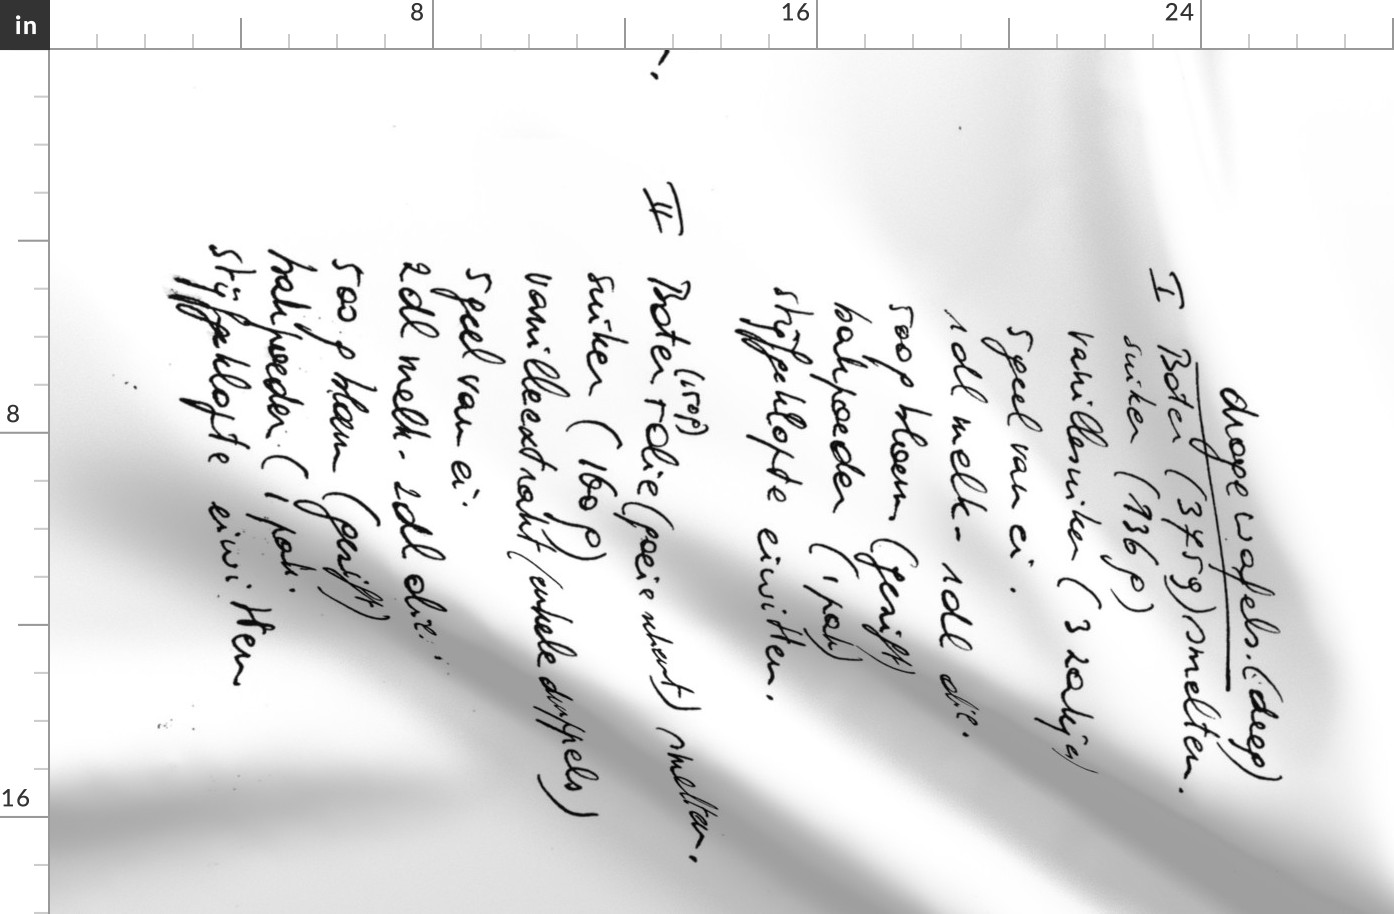 droge wafels. (deeg)
I Boter (375g) smelten.
suiker (936g)
vanillesuiker (3 zakjes)
5 geel van ei.
1dl melk - 1dl olie.
500g bloem (gezift)
bakpoeder (1 pak)
stijfgeklopte eiwitten.
II Boter (150g) + olie (goeie scheut) smelten.
suiker (160g)
vanilleextrakt (enkele druppels)
5 geel van ei.
2dl melk - 2dl olie.
500g bloem (gezift)
bakpoeder (1 pak.
stijfgeklopte eiwitten